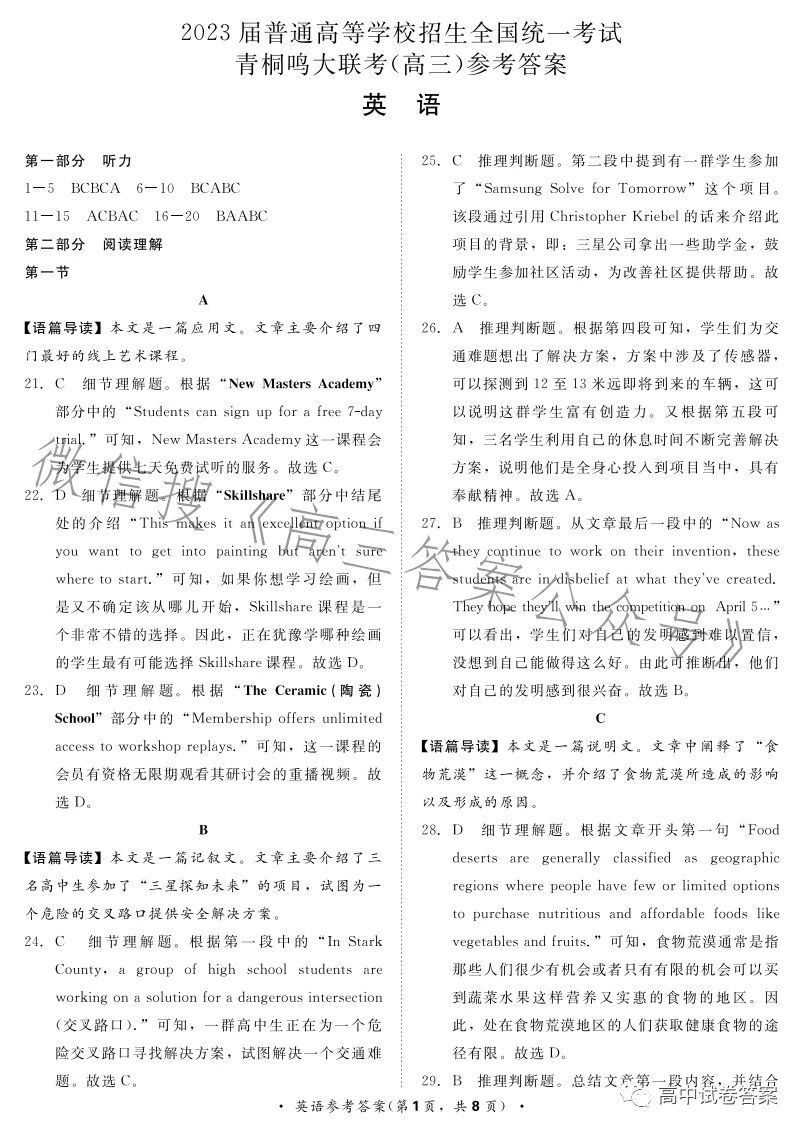 2023届普通高等学校招生全国统一考试
青桐鸣大联考(高三)参考答案
英 语
第一部分 听力
1—5 BCBCA 6—10 BCABC
11—15 ACBAC 16—20 BAABC
第二部分 阅读理解
第一节
A
【语篇导读】本文是一篇应用文。文章主要介绍了四
门最好的线上艺术课程。
21. C 细节理解题。根据“New Masters Academy”
部分中的“Students can sign up for a free 7-day
trial.”可知,New Masters Academy这一课程会
为学生提供七天免费试听的服务。故选C。
22. D 细节理解题。根据“Skillshare”部分中结尾
处的介绍“This makes it an excellent option if
you want to get into painting but aren't sure
where to start.”可知,如果你想学习绘画,但
是又不确定该从哪儿开始,Skillshare课程是一
个非常不错的选择。因此,正在犹豫学哪种绘画
的学生最有可能选择Skillshare课程。故选D。
23. D 细节理解题。根据“The Ceramic(陶瓷)
School”部分中的“Membership offers unlimited
access to workshop replays.”可知,这一课程的
会员有资格无限期观看其研讨会的重播视频。故
选D。
B
【语篇导读】本文是一篇记叙文。文章主要介绍了三
名高中生参加了“三星探知未来”的项目,试图为一
个危险的交叉路口提供安全解决方案。
24. C 细节理解题。根据第一段中的“In Stark
County, a group of high school students are
working on a solution for a dangerous intersection
(交叉路口).”可知,一群高中生正在为一个危
险交叉路口寻找解决方案,试图解决一个交通难
题。故选C。
25. C 推理判断题。第二段中提到有一群学生参加
了“Samsung Solve for Tomorrow”这个项目。
该段通过引用Christopher Kriebel的话来介绍此
项目的背景,即:三星公司拿出一些助学金,鼓
励学生参加社区活动,为改善社区提供帮助。故
选C。
26. A 推理判断题。根据第四段可知,学生们为交
通难题想出了解决方案,方案中涉及了传感器,
可以探测到12至13米远即将到来的车辆,这可
以说明这群学生富有创造力。又根据第五段可
知,三名学生利用自己的休息时间不断完善解决
方案,说明他们是全身心投入到项目当中,具有
奉献精神。故选A。
27. B 推理判断题。从文章最后一段中的“Now as
they continue to work on their invention, these
students are in disbelief at what they've created.
They hope they'll win the competition on April 5…”
可以看出,学生们对自己的发明感到难以置信,
没想到自己能做得这么好。由此可推断出,他们
对自己的发明感到很兴奋。故选B。
C
【语篇导读】本文是一篇说明文。文章中阐释了“食
物荒漠”这一概念,并介绍了食物荒漠所造成的影响
以及形成的原因。
28. D 细节理解题。根据文章开头第一句“Food
deserts are generally classified as geographic
regions where people have few or limited options
to purchase nutritious and affordable foods like
vegetables and fruits.”可知,食物荒漠通常是指
那些人们很少有机会或者只有有限的机会可以买
到蔬菜水果这样营养又实惠的食物的地区。因
此,处在食物荒漠地区的人们获取健康食物的途
径有限。故选D。
29. B 推理判断题。总结文章第一段内容,并结合
·英语参考答案(第1页,共8页)·
微信搜《高三答案公众号》
高中试卷答案